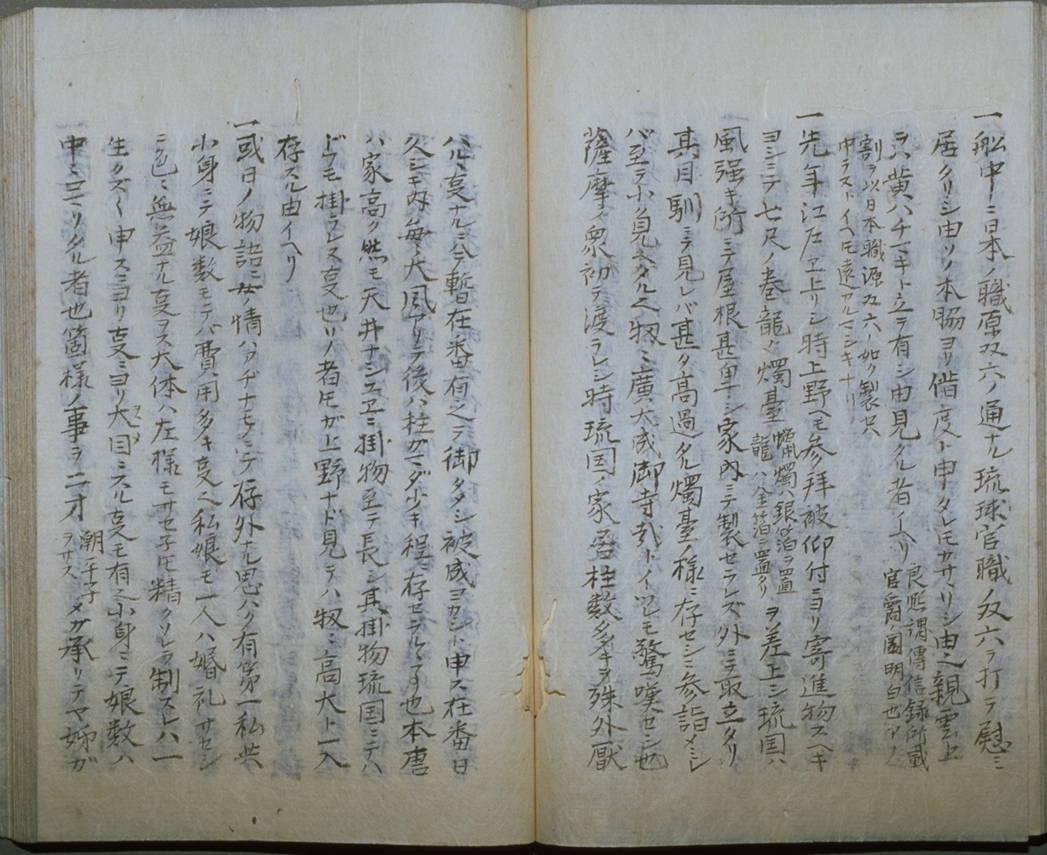 一船中ニ日本ノ職原双六ノ通ナル琉球官職ノ双六ヲ打テ慰ミ
居タリシ由ソノ本脇ヨリ借度ト申タレトモカサヽリシ由之親雲上
ヲハ黄ハチマキト立テ有シ由見タル者ノイヘリ
良熙謂傳信録所載
官爵ノ圖明白也アノ
割ヲ以日本職源双六ノ如ク製セハ
中ラストイヘモ遠カルマシキナリ
一先年江府ヱ上リシ時上野ヘモ参拝被仰付ニヨリ寄進物スヘキ
ヨシニテ七尺ノ巻龍ノ燭臺
蝋燭ハ銀箔ヲ置
龍ハ金箔ニ置タリ
ヲ差上シ琉国ハ
風强キ所ニテ屋根甚卑シ家内ニテ製セラレズ外ニテ取立タリ
其目馴ニテ見レバ甚タ高過タル燭臺ノ様ニ存セシニ参詣メシ
バ至テ小ク見ヘタル之物ミ廣大成御寺哉トイツレモ驚嘆セシ也
薩摩ノ衆初テ渡ラレシ時琉国ノ家居柱数多キヲ殊外厭
ハルヽ
暫在番有之テ御タメシ被成ヨカシト申ス在番日
久シキ内毎ノ大風アリテ後ハ柱ガマダ少キ程ニ存セラルヽヨリ也本唐
ハ家高ク然モ天井ナシユヱニ掛物至テ長シ其掛物琉国ニテハ
ドフモ掛ラレス
也ソノ者トモガ上野ナド見テハ物ミ高大ト一入
存スル由イヘリ
一或日ノ物語ニ女ノ情ハ
存外ナル思ハク有第一私共
小身ニテ娘数モテバ費用多キ
私娘モ一人ハ婚礼サセシ
ニ色ミ無益ナル
大体ハ左様モサセ子トモ精クソレヲ制スレハ一
生クスヽ申スニヨリ
ニヨリ大目ニスル
モ有之小身ニテ娘数ハ
申ニ
タル者也箇様ノ事ヲニオ
潮平子
ヲサス
メガ承リテマ姉ガ